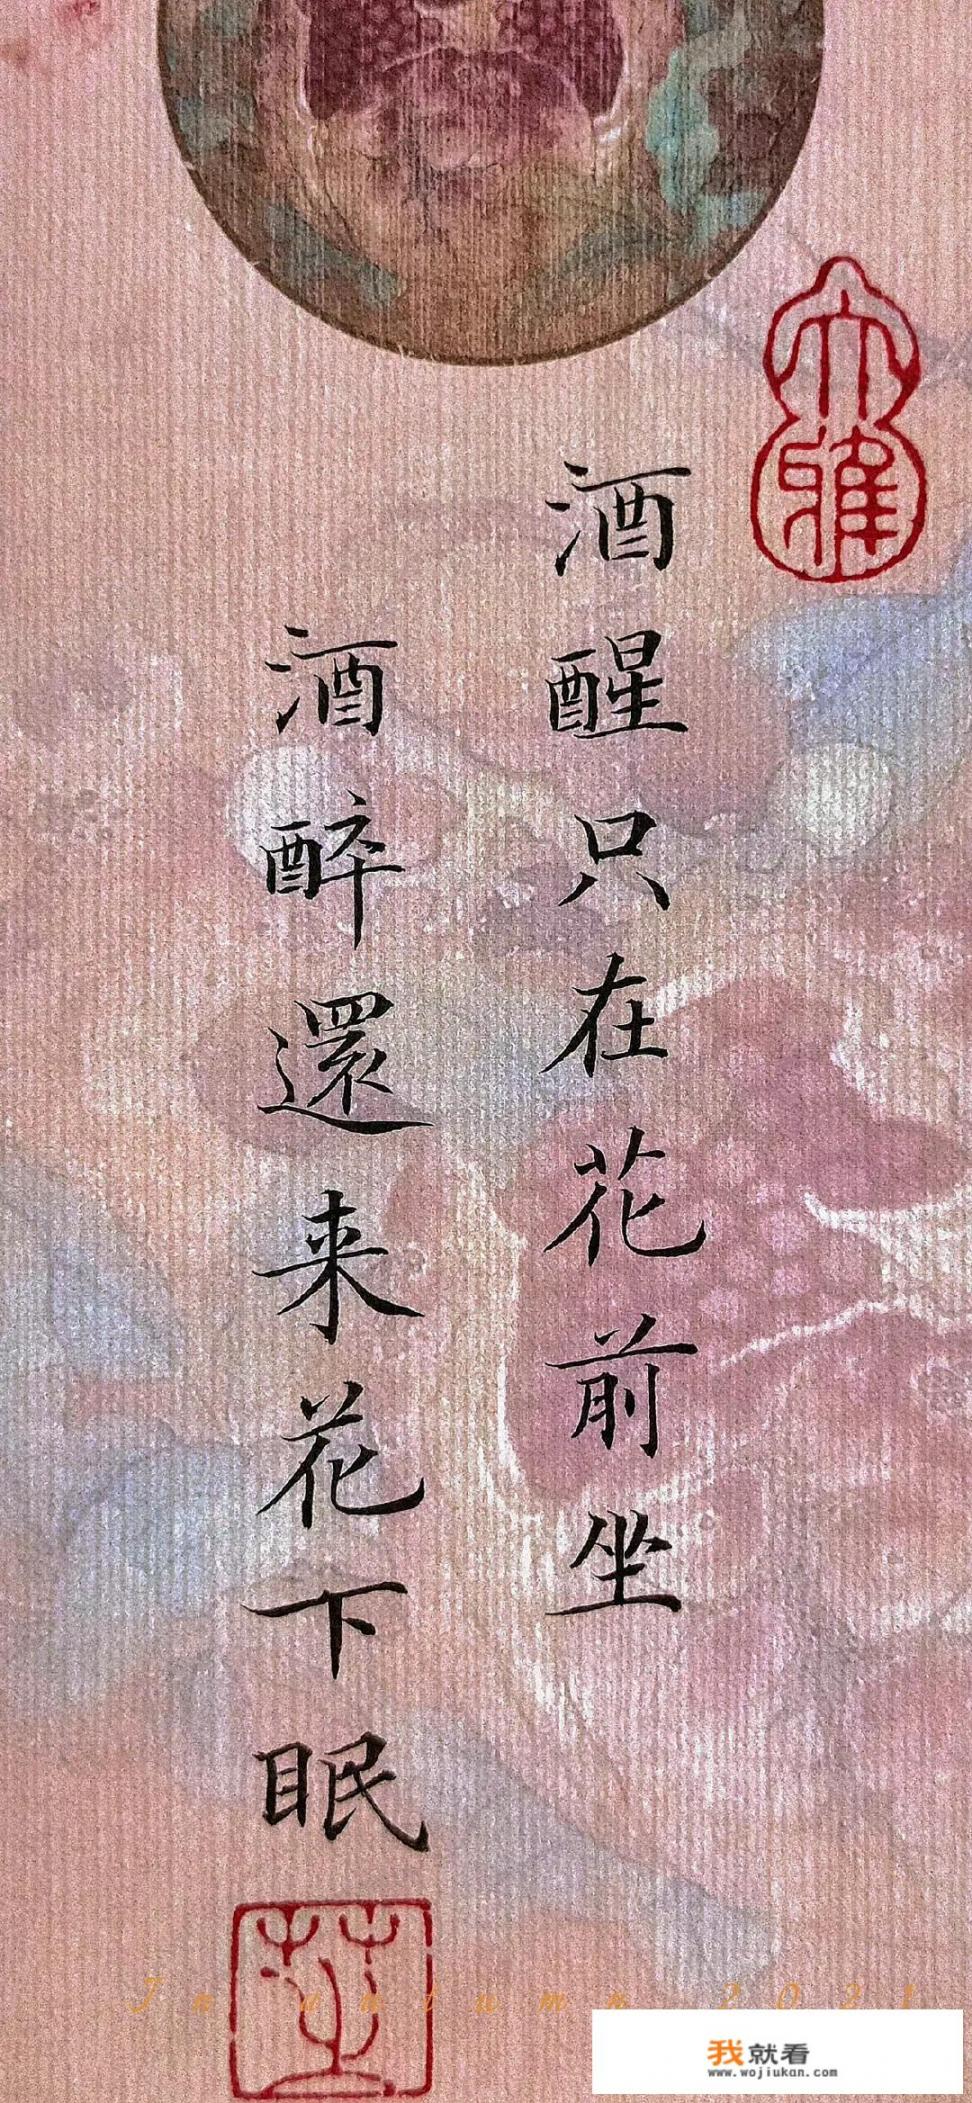 大雅
酒醒只在花前坐
酒醉還来花下眠
In autumn 2021
我就看
www.wojiukan.com